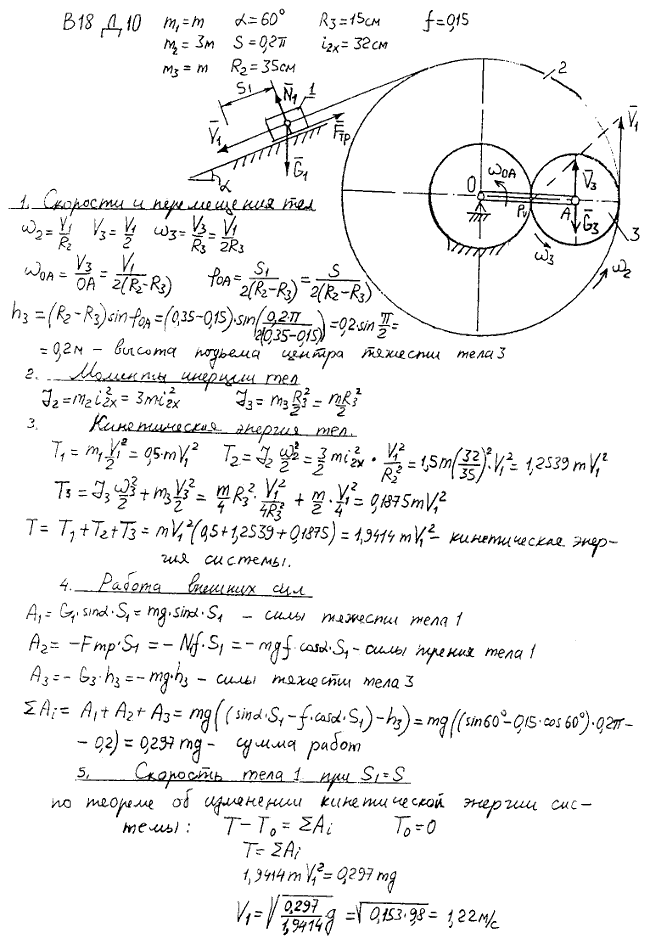 В18 Д 10 m₁=m α=60° R₃=15см f=0,15
m₂=3m S=0,2π i₂ₓ=32см
m₃=m R₂=35см
S₁ N̄₁ 1 V̄₁ F̄тр Ḡ₁ α
2 V̄₁ O ω₀A Pv A V̄₃ Ḡ₃ ω₃ 3 ω₂
1. Скорости и перемещения тел
ω₂=V₁/R₂ V₃=V₁/2 ω₃=V₃/R₃=V₁/2R₃
ω₀A=V₃/OA=V₁/2(R₂-R₃) φ₀A=S₁/2(R₂-R₃)=S/2(R₂-R₃)
h₃=(R₂-R₃)sinφ₀A=(0,35-0,15)·sin(0,2π/2(0,35-0,15))=0,2·sin π/2=
=0,2м - высота подъема центра тяжести тела 3
2. Моменты инерции тел
J₂=m₂i²₂ₓ=3mi²₂ₓ J₃=m₃R₃²/2=mR₃²/2
3. Кинетическая энергия тел.
T₁=m₁V₁²/2=0,5·mV₁² T₂=J₂ω₂²/2=3/2 mi²₂ₓ·V₁²/R₂²=1,5m(32/35)²·V₁²=1,2539mV₁²
T₃=J₃ω₃²/2+m₃V₃²/2=m/4 R₃²·V₁²/4R₃²+m/2·V₁²/4=0,1875mV₁²
T=T₁+T₂+T₃=mV₁²(0,5+1,2539+0,1875)=1,9414mV₁²- кинетическая энер-
гия системы.
4. Работа внешних сил
A₁=G₁·sinα·S₁=mg·sinα·S₁ - силы тяжести тела 1
A₂=-Fтр·S₁=-Nf·S₁=-mgf·cosα·S₁-силы трения тела 1
A₃=-G₃·h₃=-mg·h₃ - силы тяжести тела 3
ΣAi=A₁+A₂+A₃=mg((sinα·S₁-f·cosα·S₁)-h₃)=mg((sin60°-0,15·cos60°)·0,2π-
-0,2)=0,297mg- сумма работ
5. Скорость тела 1 при S₁=S
по теореме об изменении кинетической энергии сис-
темы: T-T₀=ΣAi T₀=0
T=ΣAi
1,9414mV₁²=0,297mg
V₁=√(0,297/1,9414 g)=√(0,153·9,8)=1,22м/с